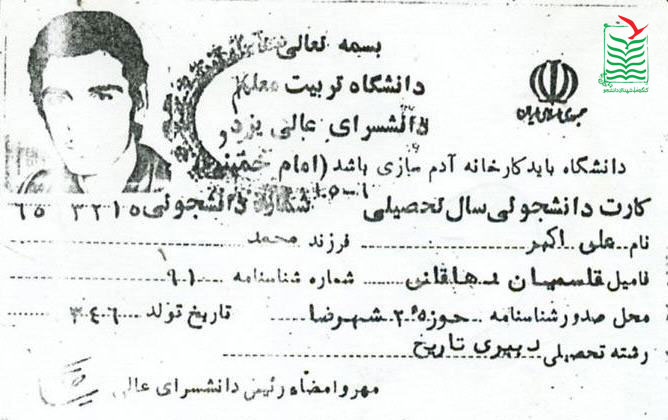 بسمه تعالی
دانشگاه تربیت معلم
دانشسرای عالی یزد
جمهوری اسلامی ایران
دانشگاه باید کارخانه آدم سازی باشد (امام خمینی)
کارت دانشجوئی سال تحصیلی شماره دانشجوئی ۶۵۰۳۲۱۵
نام علی اکبر فرزند محمد
فامیل قاسمیان دهاقانی شماره شناسنامه ۹۱
محل صدور شناسنامه حوزه ۲ شهرضا تاریخ تولد ۳۴۶
رشته تحصیلی دبیری تاریخ
مهر و امضاء رئیس دانشسرای عالی